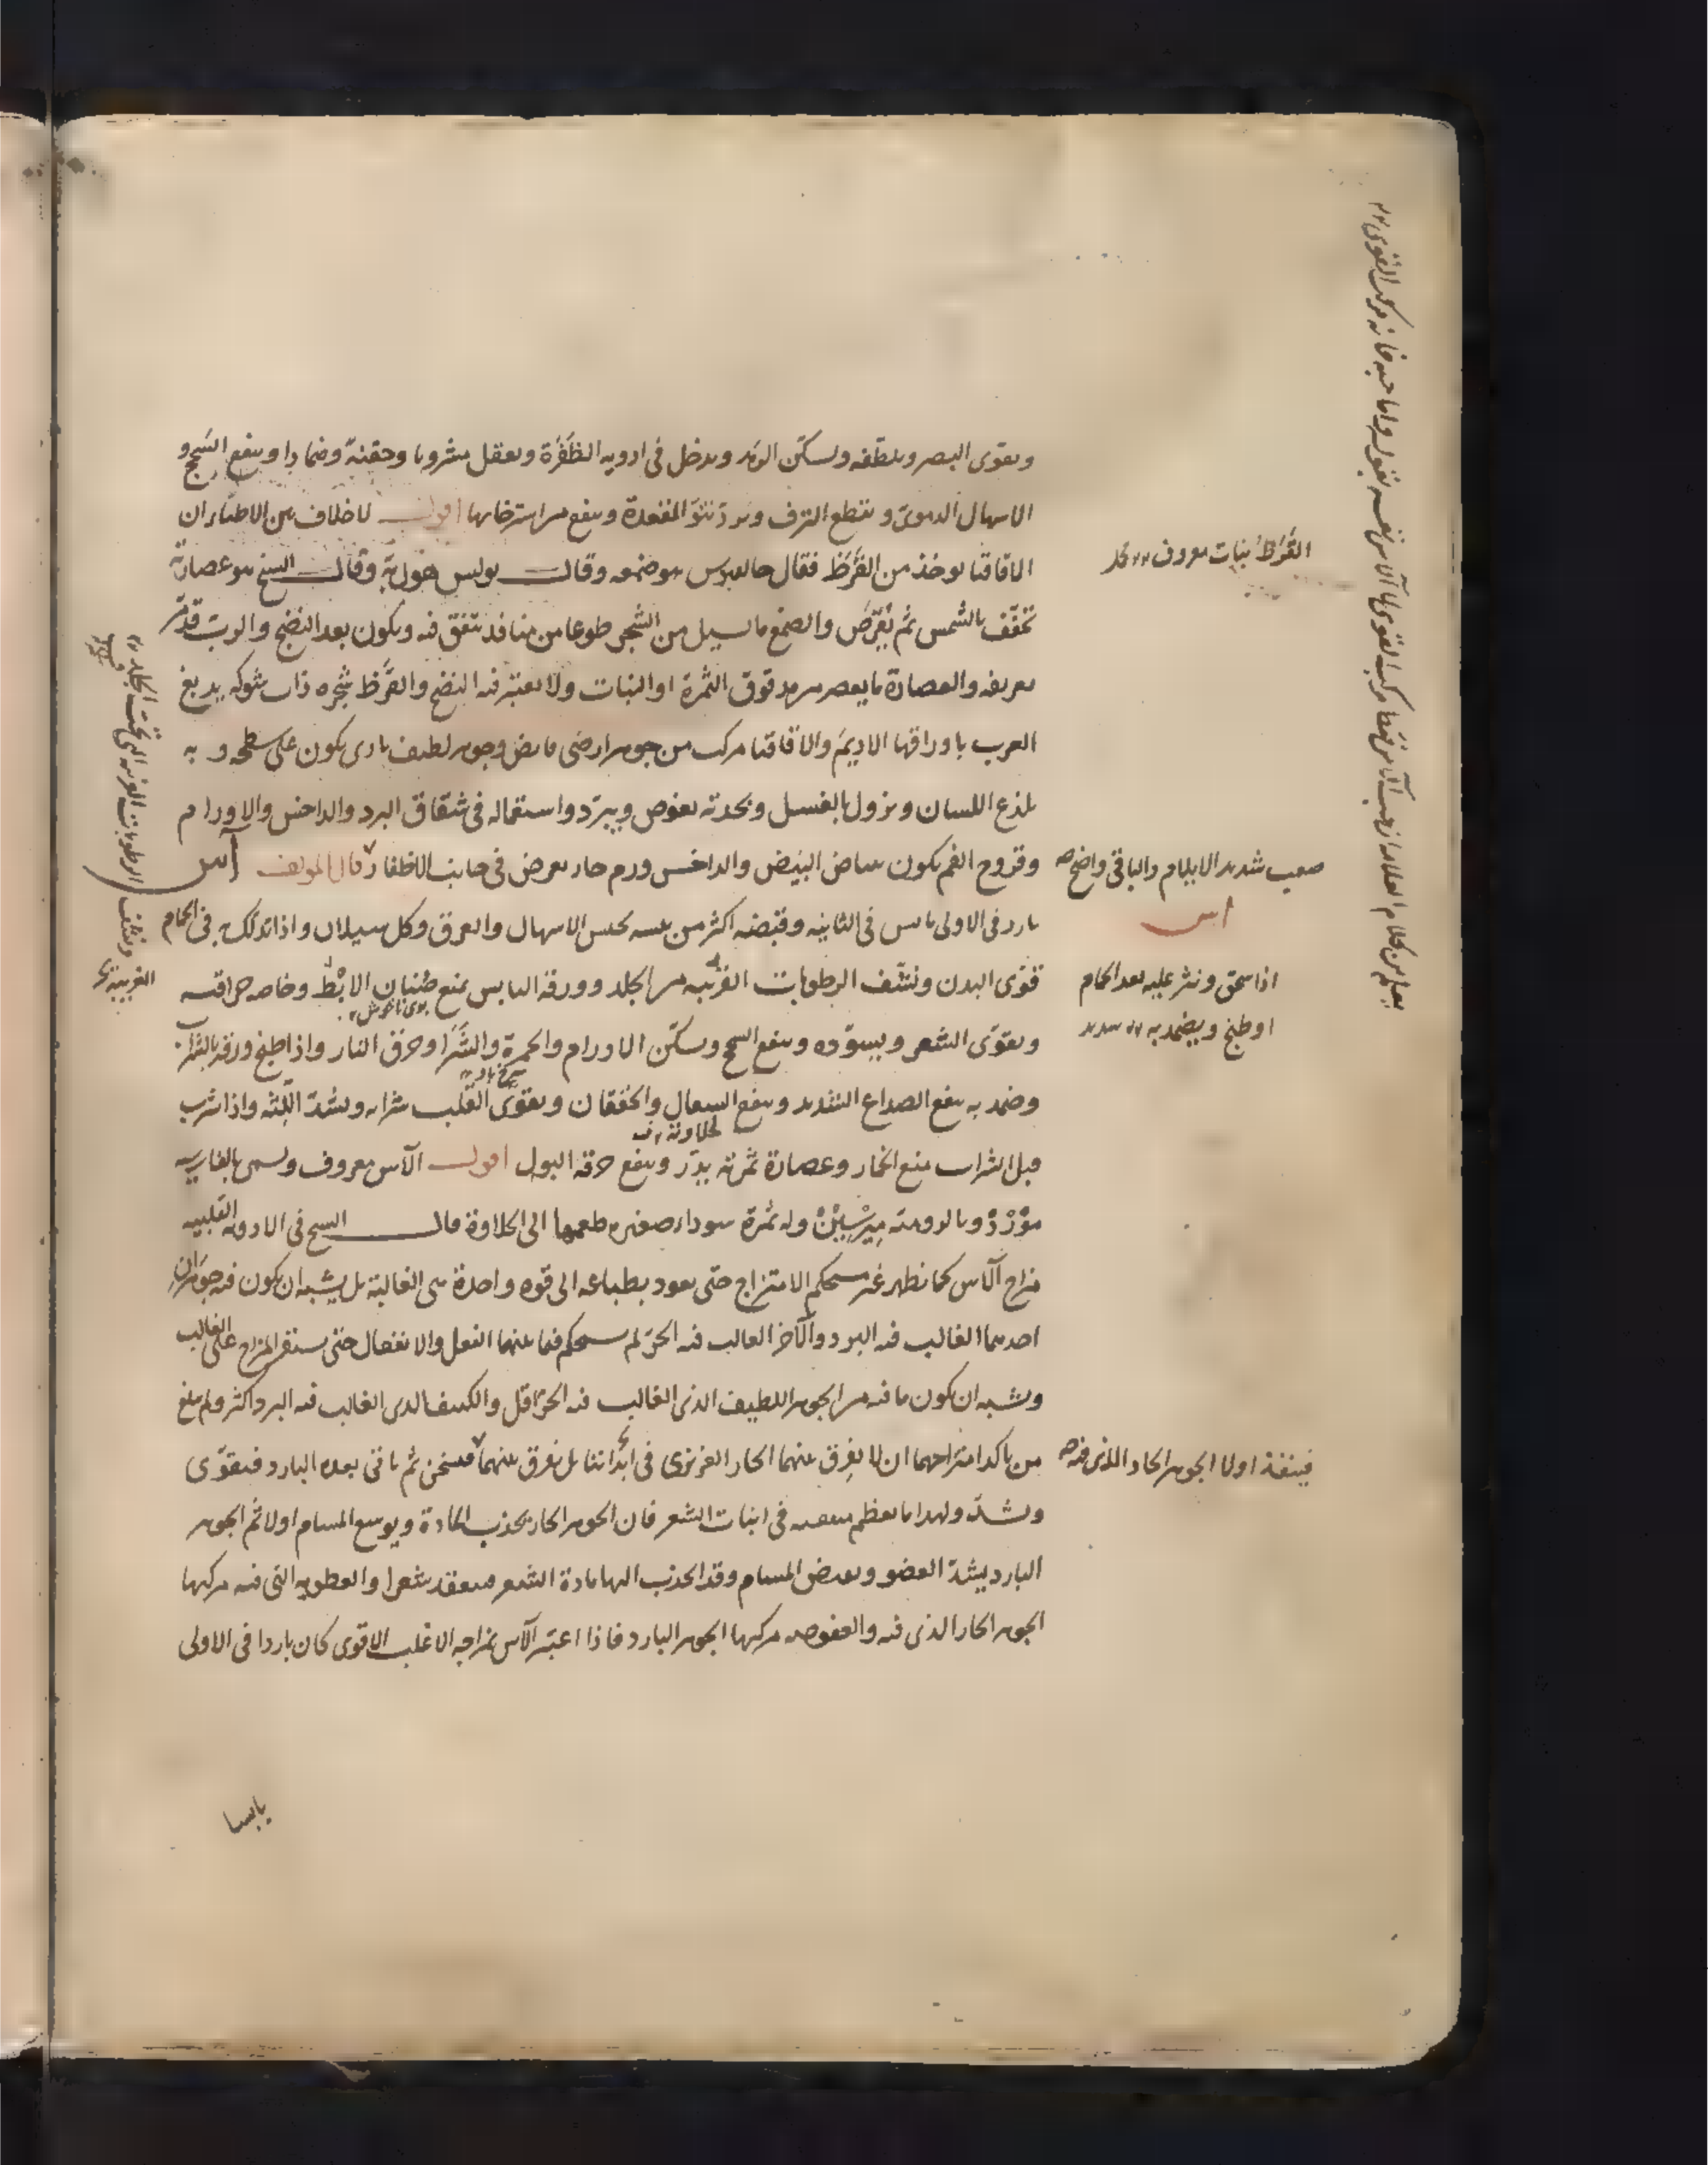 ويقوى البصر ويلطفه ويسكن الرمد ويدخل فى ادويه الظَفَرَة ويعقل مشروبا وحقنة وضمادا وينفع السَحج و
الاسهال الدموى ويقطع النزف ويرد نتوّ المقعدة وينفع من استرخايها اقول لا خلاف بين الاطباء ان
الاقاقيا يوخذ من القَرَظ فقال جالينوس هو صمغه وقال بولس هو ربّه وقال الشيخ هو عصارته
تجفّف بالشمس ثم يقرّص والصمغ ما يسيل من الشجر طوعا من منافذ تنفتق فيه ويكون بعد النضج والرب قد مرّ
تعريفه والعصارة ما يعصر من مدقوق الثمرة او النبات ولا يعتبر فيه النضج والقَرَظ شجره ذات شوكه يدبغ
العرب باوراقها الاديم والاقاقيا مركب من جوهر ارضى قابض وجوهر لطيف نارى يكون على سطحه و به
يلذع اللسان ويزول بالغسل وبحدته يغوص ويبرّد واستعماله فى شقاق البرد والداحس والاورام
وقروح الفم يكون ببياض البيض والداحس ورم حار يعرض فى جانب الاظفار قال المولف آس
بارد فى الاولى يابس فى الثانيه وقبضه اكثر من يبسه يحبس الاسهال والعرق وكل سيلان واذا تدلك به فى الحمام
قوى البدن ونشّف الرطوبات الغريبه من الجلد وورقه اليابس يمنع صُنان الابْط وخاصه حراقته
ويقوّى الشعر ويسوّده وينفع السحج ويسكّن الاورام والحمرة والشَّرَا وحرق النار واذا طبخ ورقه بالشراب
وضمد به ينفع الصداع الشديد وينفع السعال والخفقان ويقوّى القلب شرابه ويشدّ اللّثه واذا شرب
لحلاوته
قبل الشراب منع الخمار وعصارة ثمرته يدرّ وينفع حرقه البول اقول الآس معروف ويسمى بالفارسيه
مُوْرْدْ وبالروميه مِيْرسِيْنْ وله ثمرة سوداء صغيره طعمها الى الحلاوة قال الشيخ فى الادويه القلبيه
مزاج الآس كما نظهر غير مستحكم الامتزاج حتى يعود بطباعه الى قوه واحدة هى الغالبة بل يشبه ان يكون فيه جوهران
احدهما الغالب فيه البرد والآخر الغالب فيه الحرّ لم يستحكم فيما بينهما الفعل والانفعال حتى يستقر المزاج على الغالب
ويشبه ان يكون ما فيه من الجوهر اللطيف الذى الغالب فيه الحرّ اقل والكثيف الذى الغالب فيه البرد اكثر ولم يبلغ
من تاكد امتزاجهما ان لا يفرق بينهما الحار الغريزى فى ابداننا بل يفرق بينهما فيسخن ثم ياتى بعده البارد فيقوّى
ويشدّ ولهذا ما يعظم منفعته فى انبات الشعر فان الجوهر الحار يجذب المادة ويوسع المسام اولا ثم الجوهر
البارد يشدّ العضو ويقبض المسام وقد انجذب اليها مادة الشعر فينعقد شعرا والعطريه التى فيه مركبها
الجوهر الحار الذى فيه والعفوصه مركبها الجوهر البارد فاذا اعتبر الآس بمزاجه الاغلب الاقوى كان باردا فى الاولى
يابسا
القَرَظ نبات معروف
صعب شديد الايلام والباقى واضح صح
آس
اذا سحق ونثر عليه بعد الحمام
او طبخ ويضمد به سديد
فينفذ اولا الجوهر الحار الذى فيه صح